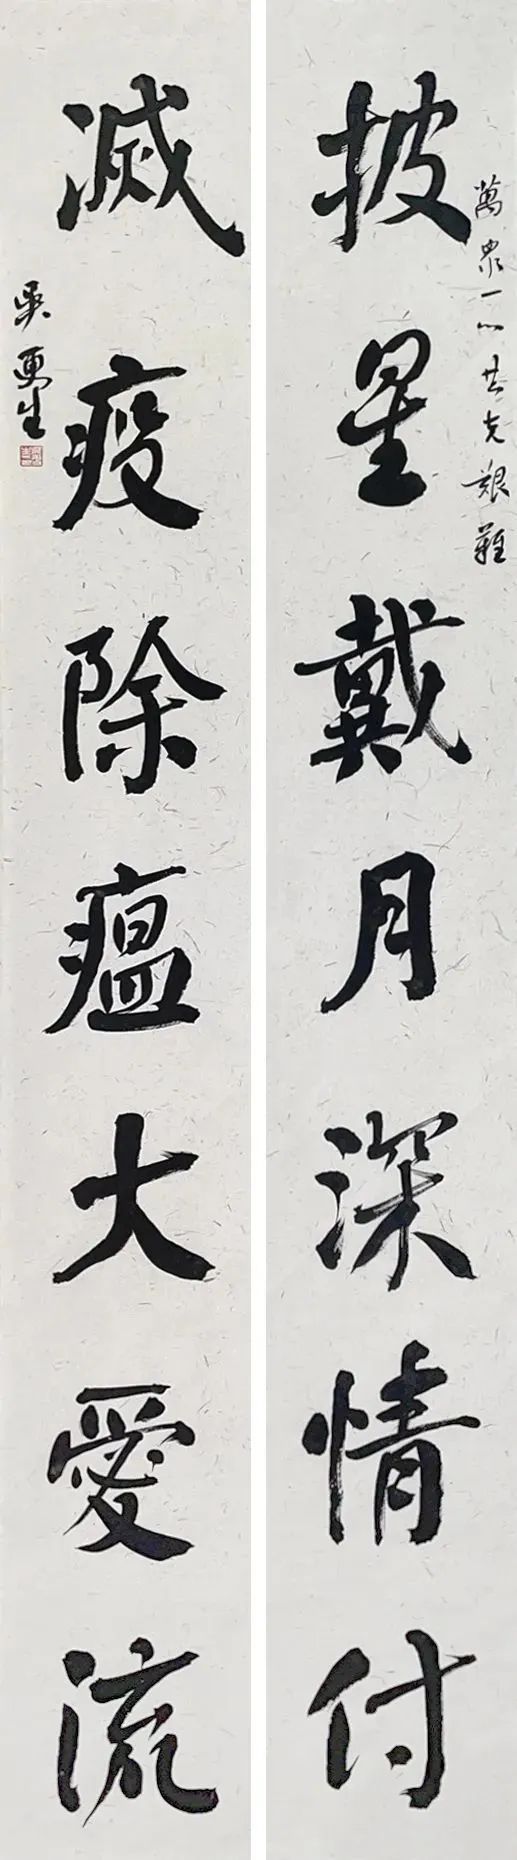 萬衆一心共克艱難
披星戴月深情付
滅疫除瘟大愛流
吳勇生